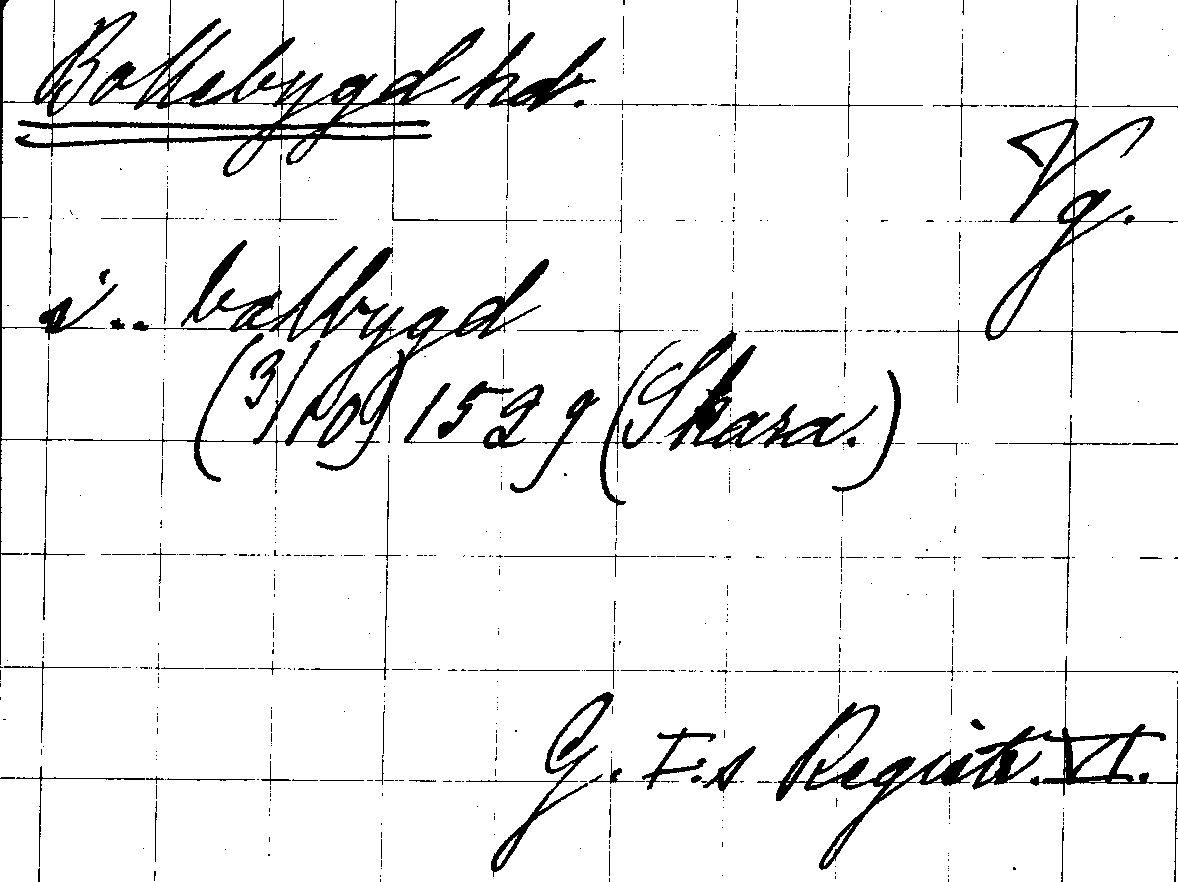 Bollebygd hd.
Vg.
i .. balbygd
(3/10) 1529 (Skara.)
G. I:s Registr. VI.